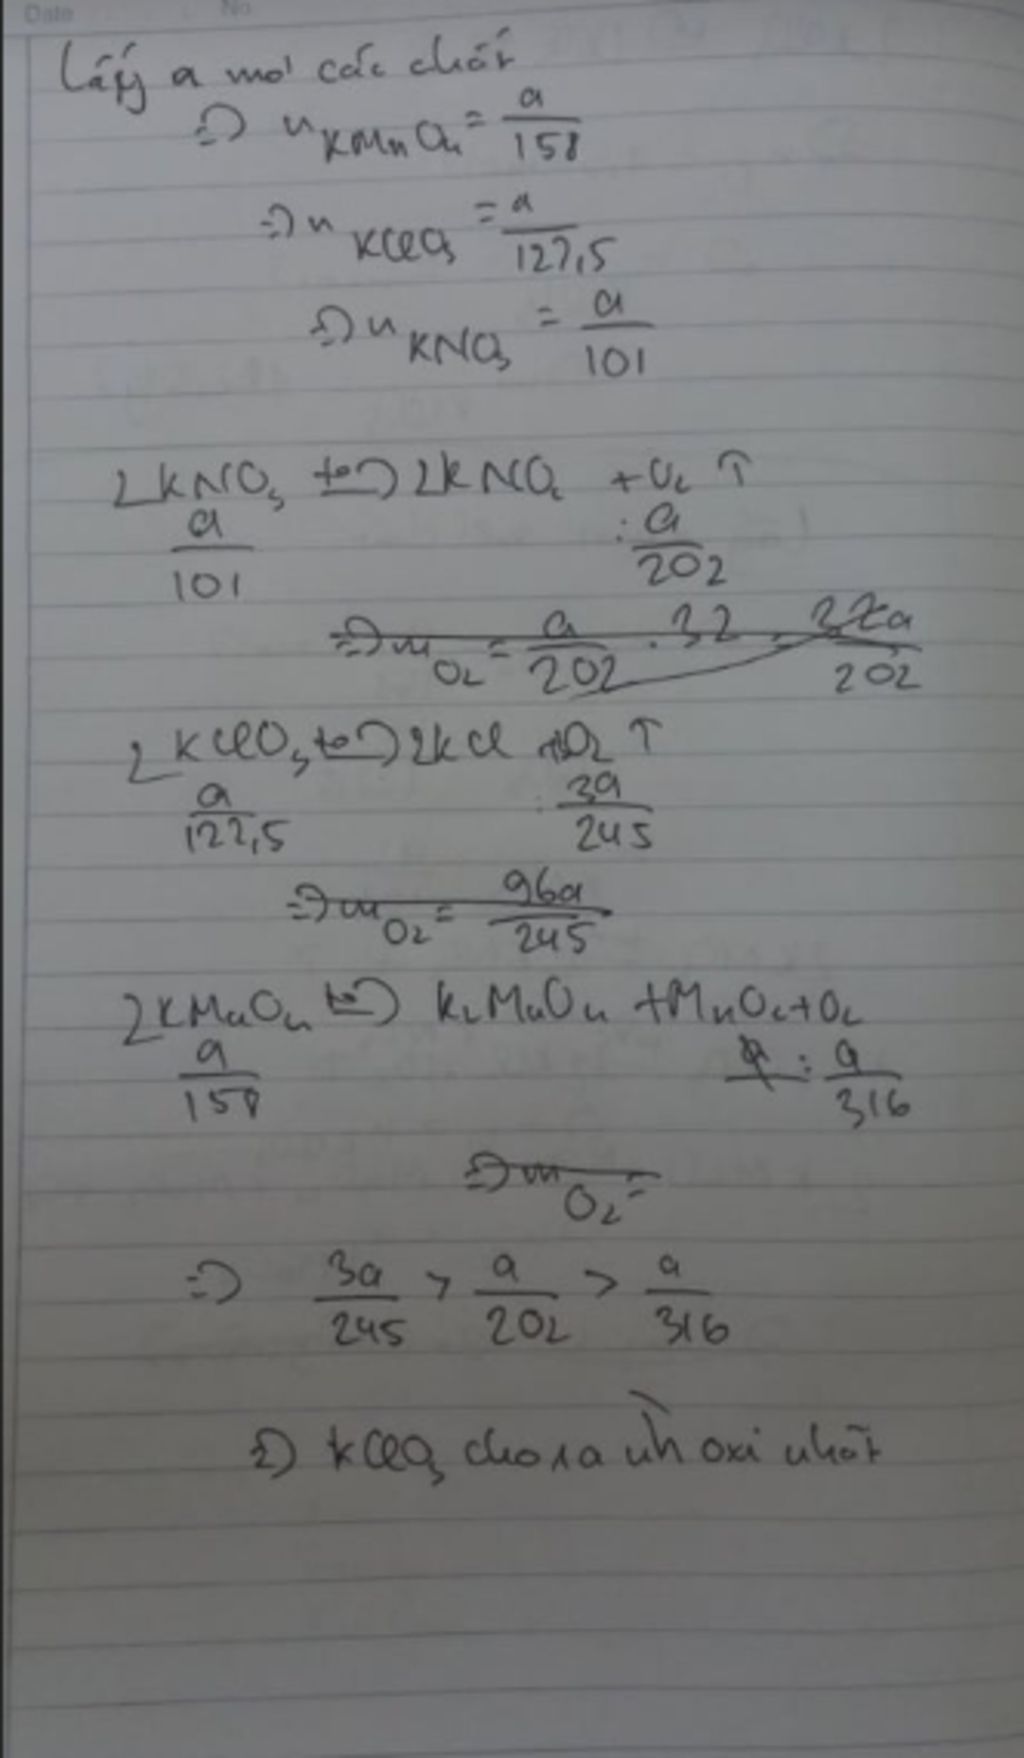 Date No
Lấy a mol các chất
=> n KMnO4 = a/158
=> n KClO3 = a/122,5
=> n KNO3 = a/101
2KNO3 t°-> 2KNO2 + O2 ↑
a/101 : a/202
=> m O2 = a/202 . 32 = 32a/202
2KClO3 t°-> 2KCl + O2 ↑
a/122,5 : 3a/245
=> m O2 = 96a/245
2KMnO4 t°-> K2MnO4 + MnO2 + O2
a/158 : a/316
=> m O2 =
=> 3a/245 > a/202 > a/316
=> KClO3 cho ra nh` oxi nhất